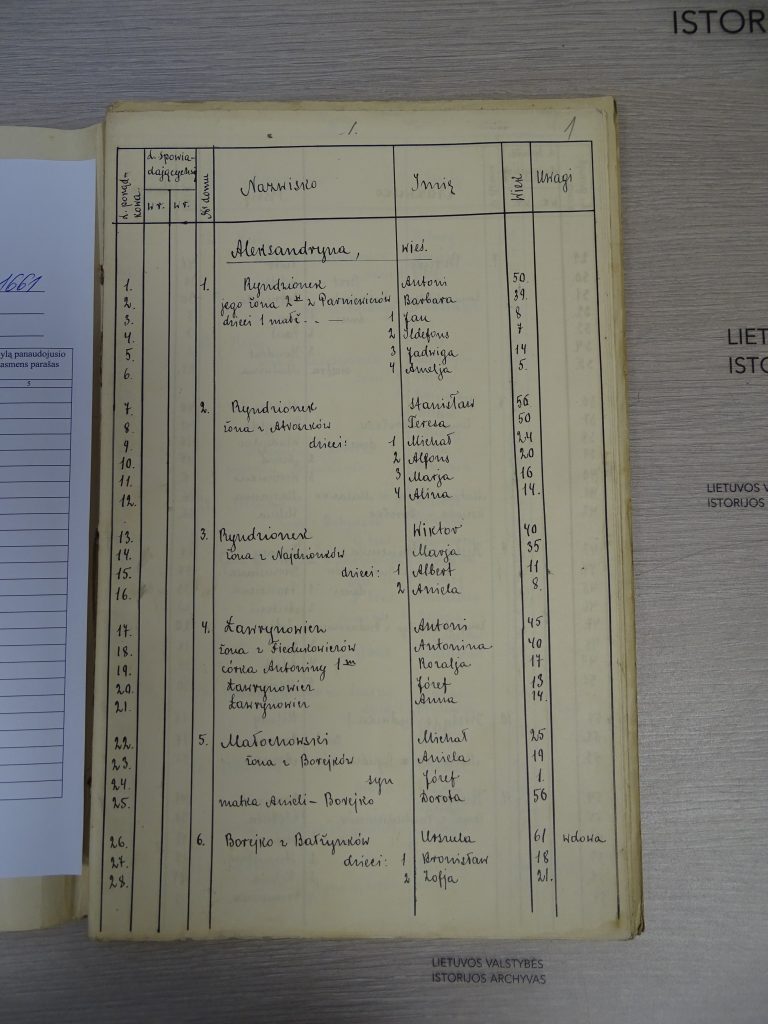 ISTOR
1.
1
L. porząd-
kowa.
L. spowia-
dających
W.r. W.r.
№ domu
Nazwisko
Imię
Wiek
Uwagi
Aleksandryna, wieś.
1. 1. Ryndzionek Antoni 50.
2. jego żona 2ᵃ z Barbara 39.
3. dzieci 1 małż. . — 1 Jan 8
4. 2 Ildefons 7
5. 3 Jadwiga 14
6. 4 Amelja 5.
7. 2. Ryndzionek Stanisław 56
8. żona z Teresa 50
9. dzieci: 1 Michał 24
10. 2 Alfons 20
11. 3 Marja 16
12. 4 Alina 14.
13. 3. Ryndzionek Wiktor 40
14. żona z Najdzionków Marja 35
15. dzieci: 1 Albert 11
16. 2 Aniela 8.
17. 4. Ławrynowicz Antoni 45
18. żona z Fiedukowiczów Antonina 40
19. córka Antoniny Rozalja 17
20. Ławrynowicz Józef 13
21. Ławrynowicz Anna 14.
22. 5. Małochowski Michał 25
23. żona z Borejków Aniela 19
24. syn Józef 1.
25. matka Anieli - Borejko Dorota 56
26. 6. Borejko z Bałżynków Urszula 61 wdowa
27. dzieci: 1 Bronisław 18
28. 2 Zofja 21.
1661
ylą panaudojusio
asmens parašas
5
LIET
ISTO
LIETUVOS V
ISTORIJOS
LIETUVOS VALSTYBĖS
ISTORIJOS ARCHYVAS